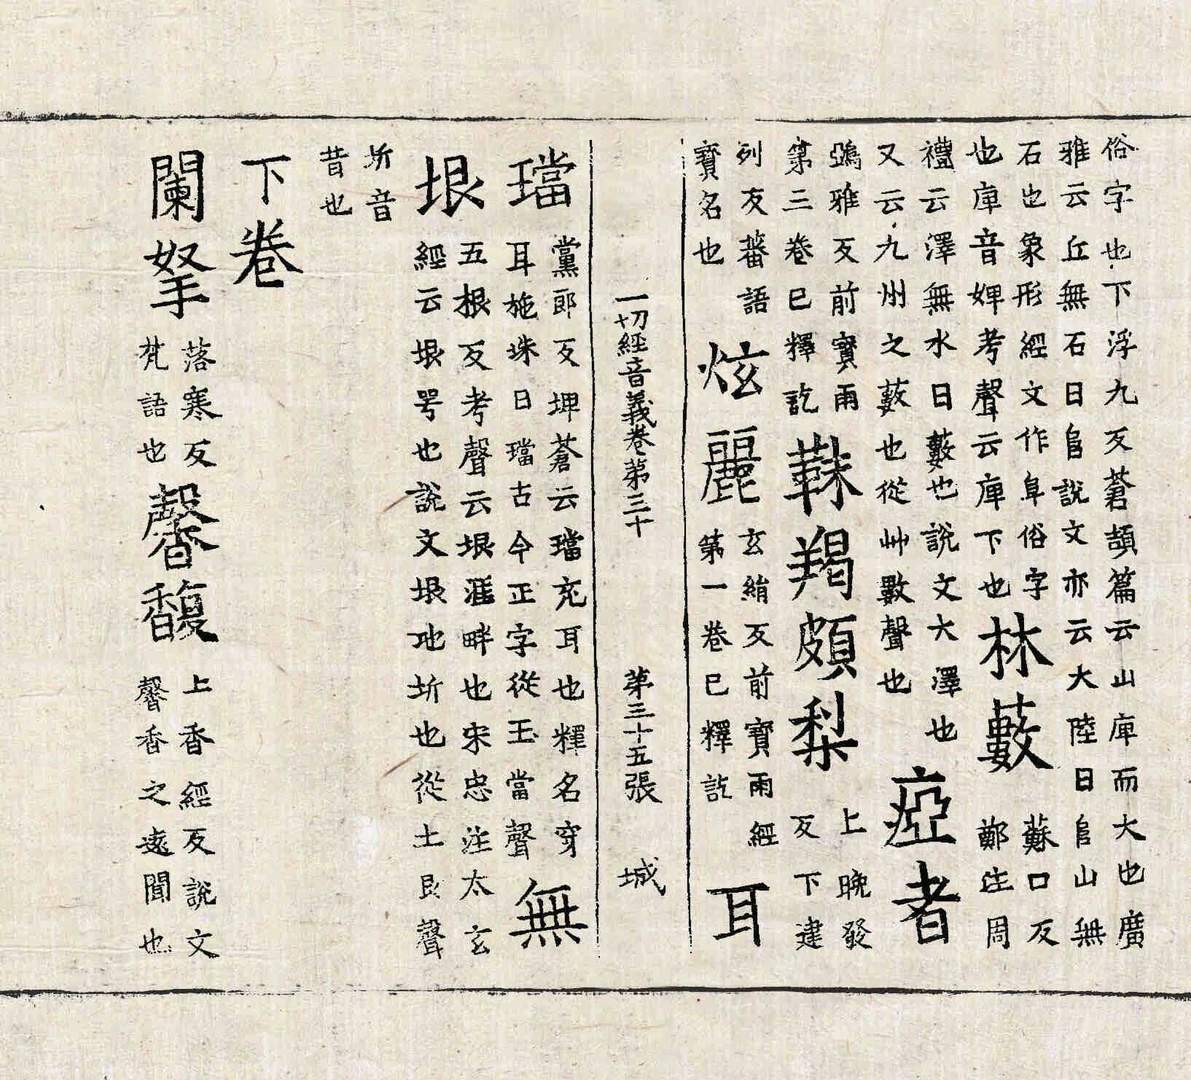 俗字也下浮九反蒼頡篇云山庳而大也廣
雅云丘無石曰𨸏說文亦云大陸曰𨸏山無
石也象形經文作阜俗字
也庳音婢考聲云庳下也
林藪
蘇口反
鄭注周
禮云澤無水曰藪也說文大澤也
又云九州之藪也從艸數聲也
瘂者
鵶雅反前寶雨
第三卷已釋訖
靺羯頗梨
上晚發
反下建
列反蕃語
寶名也
炫麗
玄絹反前寶雨經
第一卷已釋訖
耳
一切經音義卷第三十 第三十五張 城
璫
黨郎反埤蒼云璫充耳也釋名穿
耳施珠曰璫古今正字從玉當聲
無
垠
五根反考聲云垠涯畔也宋忠注太玄
經云垠咢也說文垠地圻也從土艮聲
圻音
昔也
下卷
闌拏
落寒反
梵語也
馨馥
上香經反說文
馨香之遠聞也